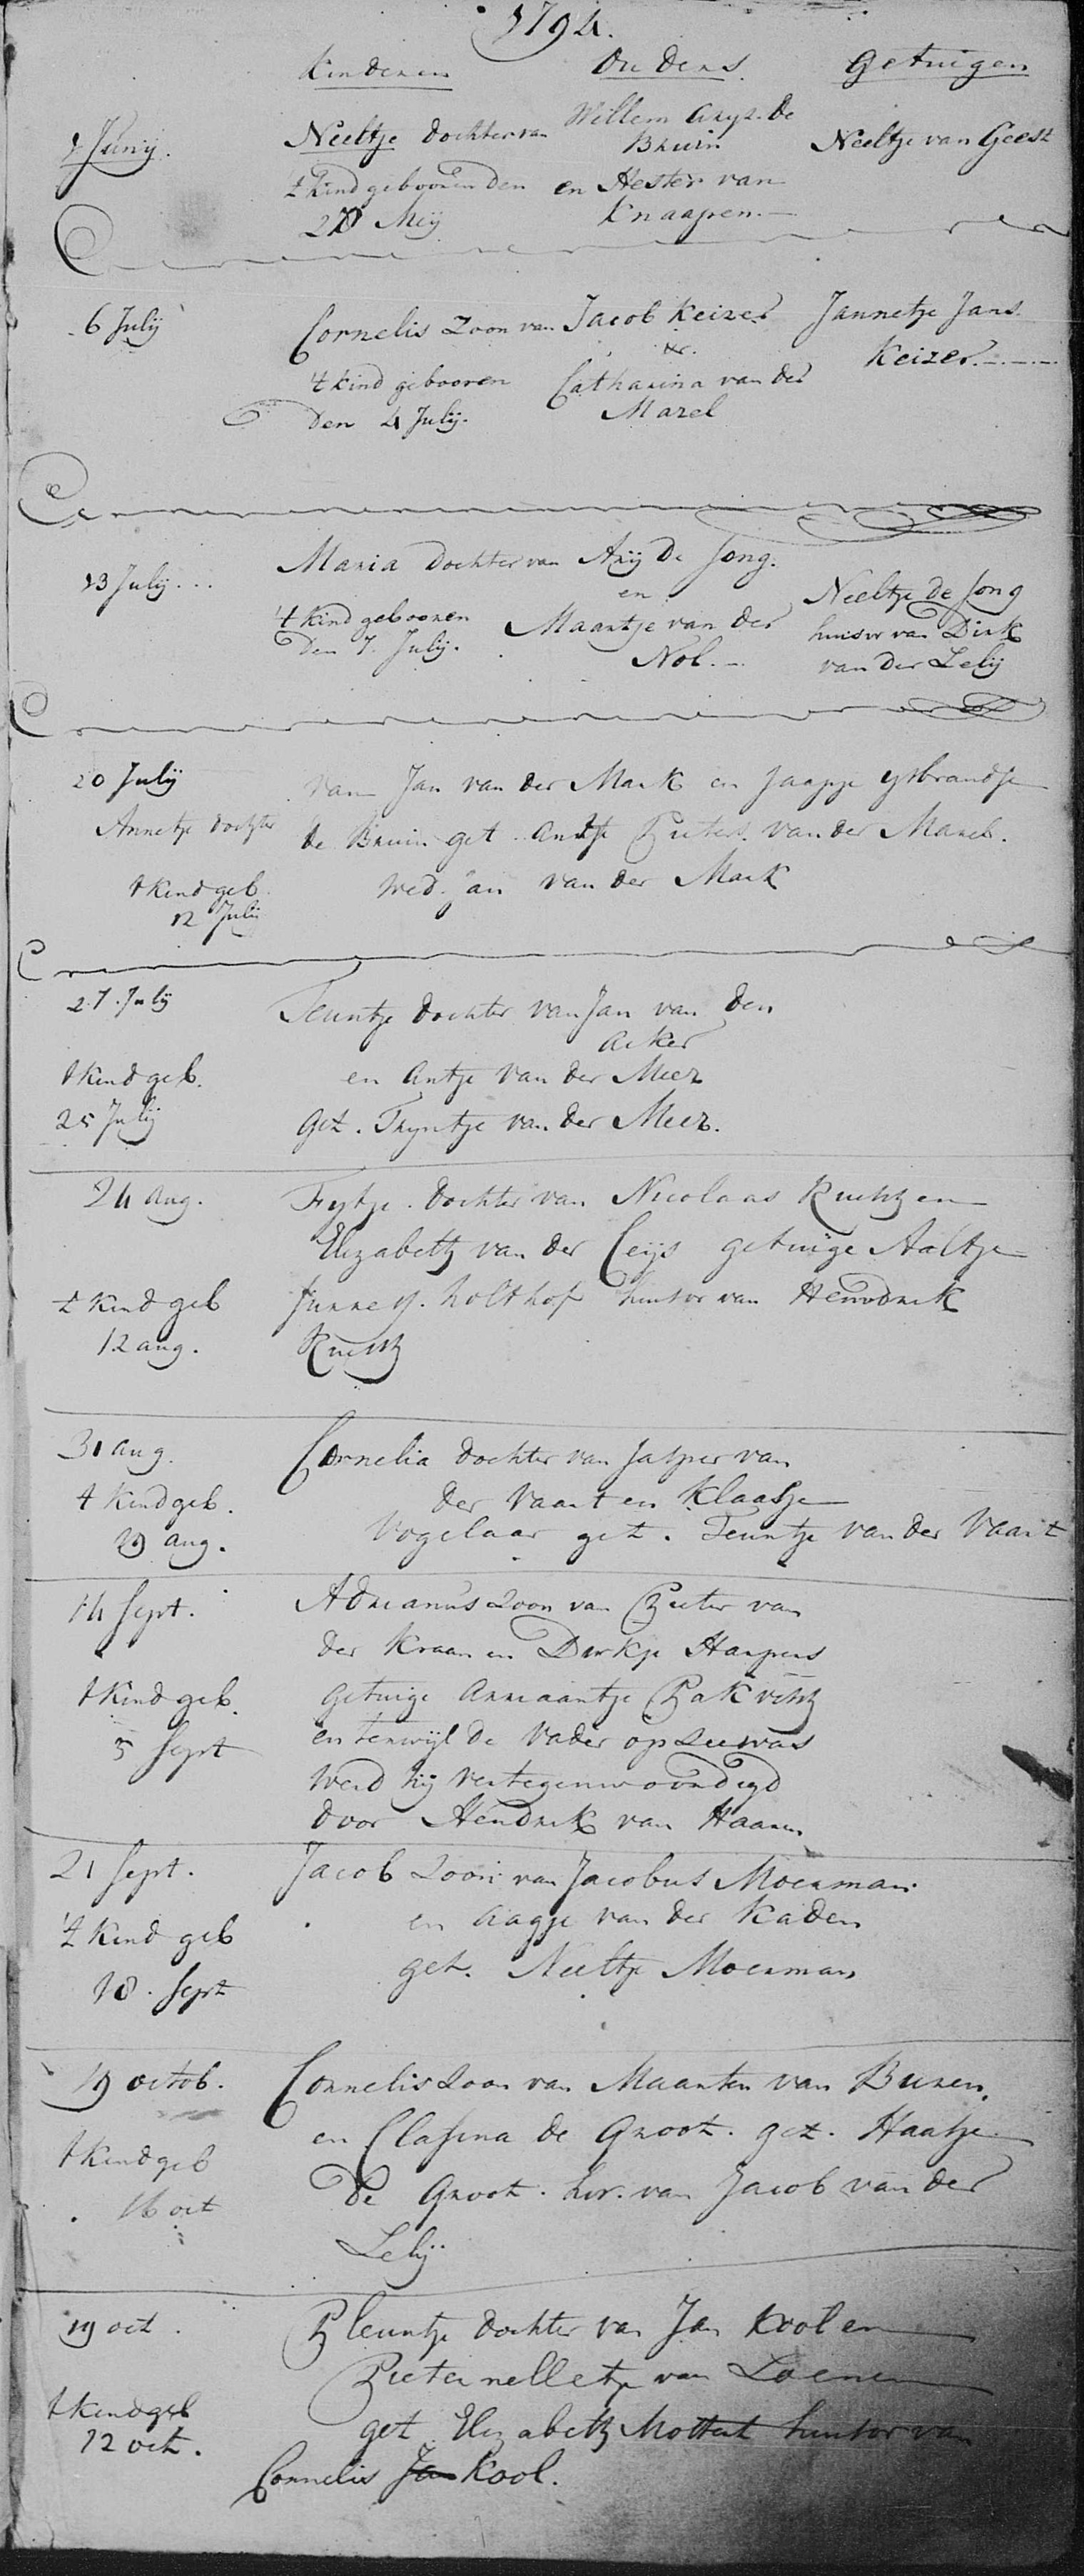 1794.
Kinderen Ouders. Getuigen
1 Junij. Neeltje dochter van Willem Arysz. de Bruin Neeltje van Geest
't kind gebooren den en Hester van
28 Meij Knaapen.
6 Julij Cornelis Zoon van Jacob Keizer Jannetje Jans
&. Keizer.
't kind gebooren Catharina van der
den 4 Julij. Marel
13 Julij... Maria dochter van Arij de Jong.
en Neeltje de Jong
't kind gebooren Maartje van der huisvr van Dirk
den 7. Julij. Nol. van der Lelij
20 Julij van Jan van der Mark en Jaapje ysbrandse
Annetje dochter de Bruin get. Pieters. van der Marel.
t kind geb. wed. Jan van der Mark
12 Julij
27. Julij Teuntje dochter van Jan van den
Acker
t kind geb. en Antje van der Meer
25 Julij Get. Tryntje van der Meer.
24 Aug. Fytje. dochter van Nicolaas en
Elizabeth van der Ceijs getuige Aaltje
t kind geb holthof huisvr van Hendrik
12 aug.
31 aug. Cornelia dochter van Jasper van
t kind geb. der Vaart en Klaasje
29 aug. Vogelaar get. Teuntje van der Vaart
14 Sept. Adrianus Zoon van Pieter van
der Kraan en Dirkje Harpers
t kind geb. Getuige Annaantje
5 Sept en terwijl de Vader op Zee was
werd hij vertegenwoordigd
door Hendrik van Haaren
21 Sept. Jacob Zoon van Jacobus Moerman
't kind geb en Aagje van der Kaden
18. Sept get. Neeltje Moerman
19 octob. Cornelis Zoon van Maarten van Buren,
t kind geb en Clasina de Groot. get. Haasje
16 oct de Groot. hvr. van Jacob van der
Lelij
19 oct. Pleuntje dochter van Jan Kool en
Pieternelletje van Loenen
t kind geb get Elizabeth Mottert huisvr van
12 oct. Cornelis Jan Kool.